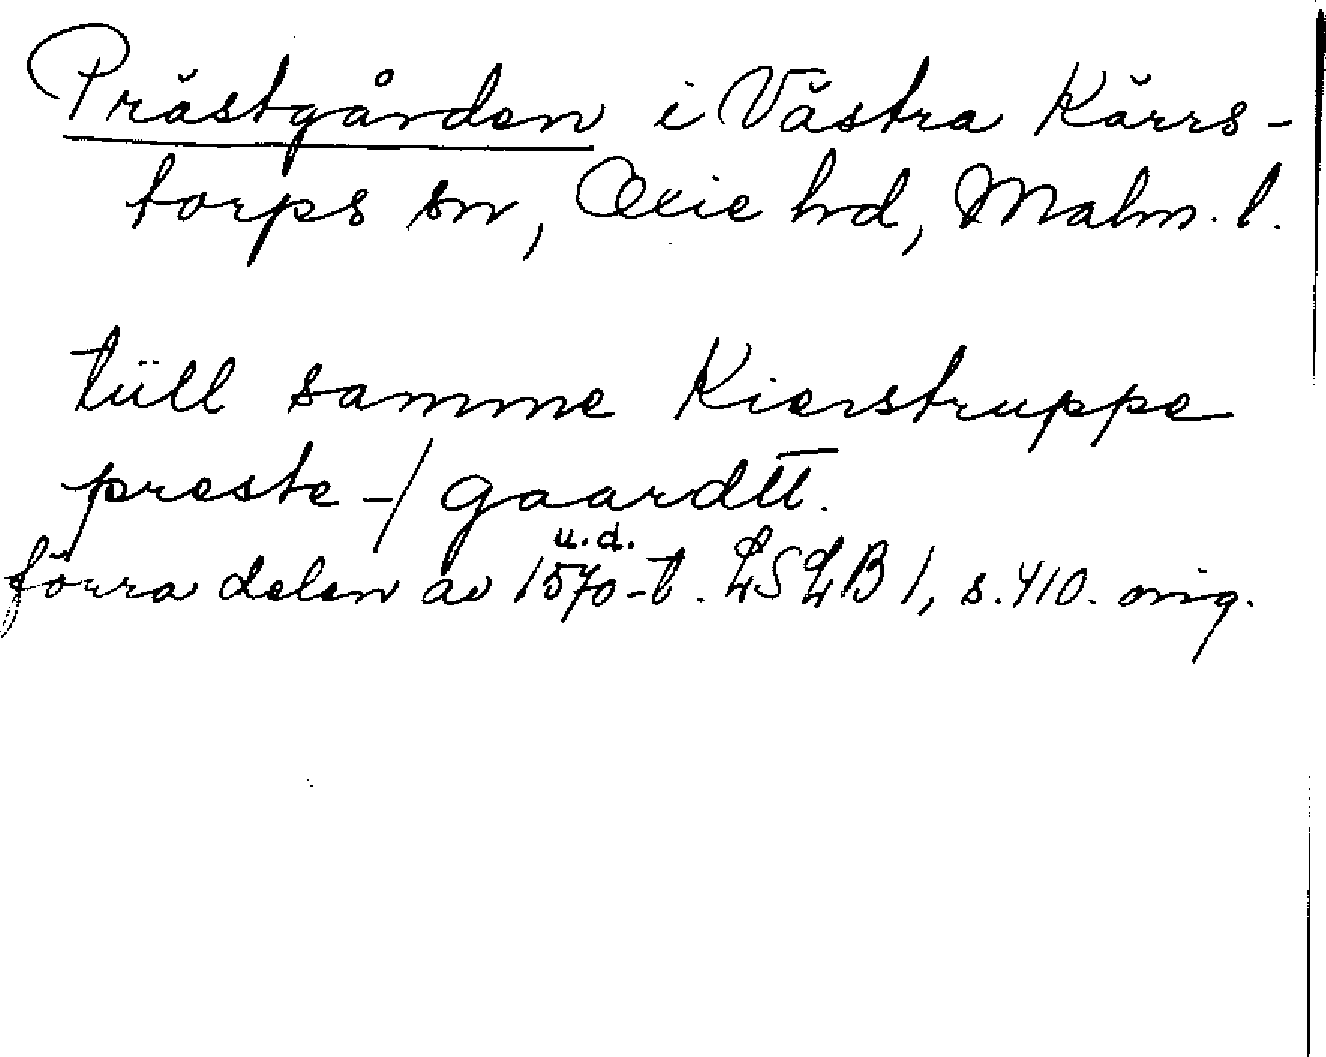 Prästgården i Västra Kärrs-
torps sn, Oxie hd, Malm. l.
tüll samme Kierstruppe
preste-/gaardtt.
u.d.
förra delen av 1570-t. LSLB 1, s. 410. orig.